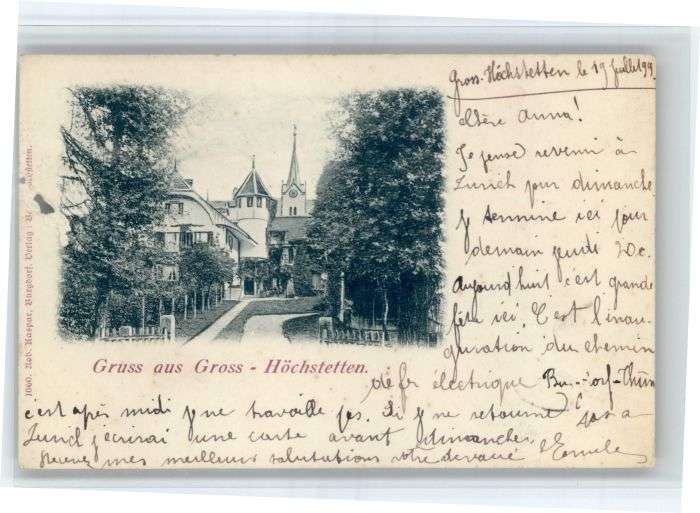 Gross-Höchstetten le 19 Juillet 99
Chère Anna!
Je pense revenir à
Zurich pour dimanche
je termine ici pour
demain jeudi 20 c.
Aujourd'huit c'est grande
fête ici. C'est l'inau-
guration du chemin
de fer électrique Burgdorf-Thun
c'est après midi je ne travaille pas. Si je ne retourne pas à
Zurich j'écrirai une carte avant dimanche.
Recevez mes meilleurs salutations votre dévoué Emile
Gruss aus Gross - Höchstetten.
1060. Rob. Kaspar, Burgdorf. Verlag: